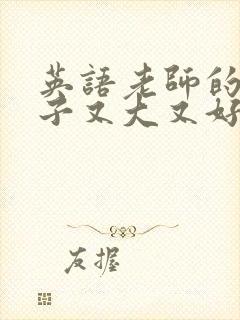 英語老師的
子又大又好
友握